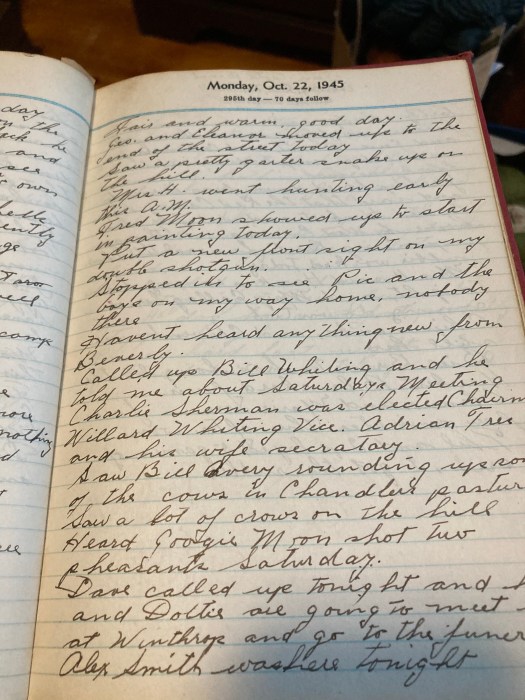 Monday, Oct. 22, 1945
295th day — 70 days follow
Fair and warm, good day.
Geo. and Eleanor moved up to the
end of the street today
Saw a pretty garter snake up on
the hill.
Mrs H. went hunting early
this A.M.
Fred Moon showed up to start
in painting today.
Put a new front sight on my
double shotgun.
Stopped in to see Pic and the
boys on my way home, nobody
there
Havent heard anything new from
Beverly.
Called up Bill Whiting and he
told me about Saturdays Meeting
Charlie Sherman was elected Chairm
Willard Whiting Vice. Adrian Tres
and his wife secratary.
Saw Bill Avery rounding up so
of the cows in Chandlers pastur
Saw a lot of crows on the hill
Heard Googie Moon shot two
pheasants Saturday.
Dave called up tonight and
and Dottie are going to meet
at Winthrop and go to the funer
Alex Smith was here tonight
day
on the
ck he
and
see
own
ently
ge
camp
more
nothing